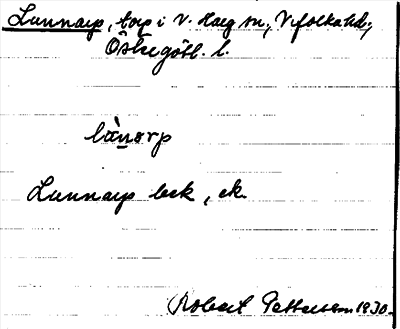 Lunnarp, torp i V. Harg sn, Vifolka hd,
Östergötl. l.
lànorp
Lunnarp bck, ek.
Robert Pettersson 1930.